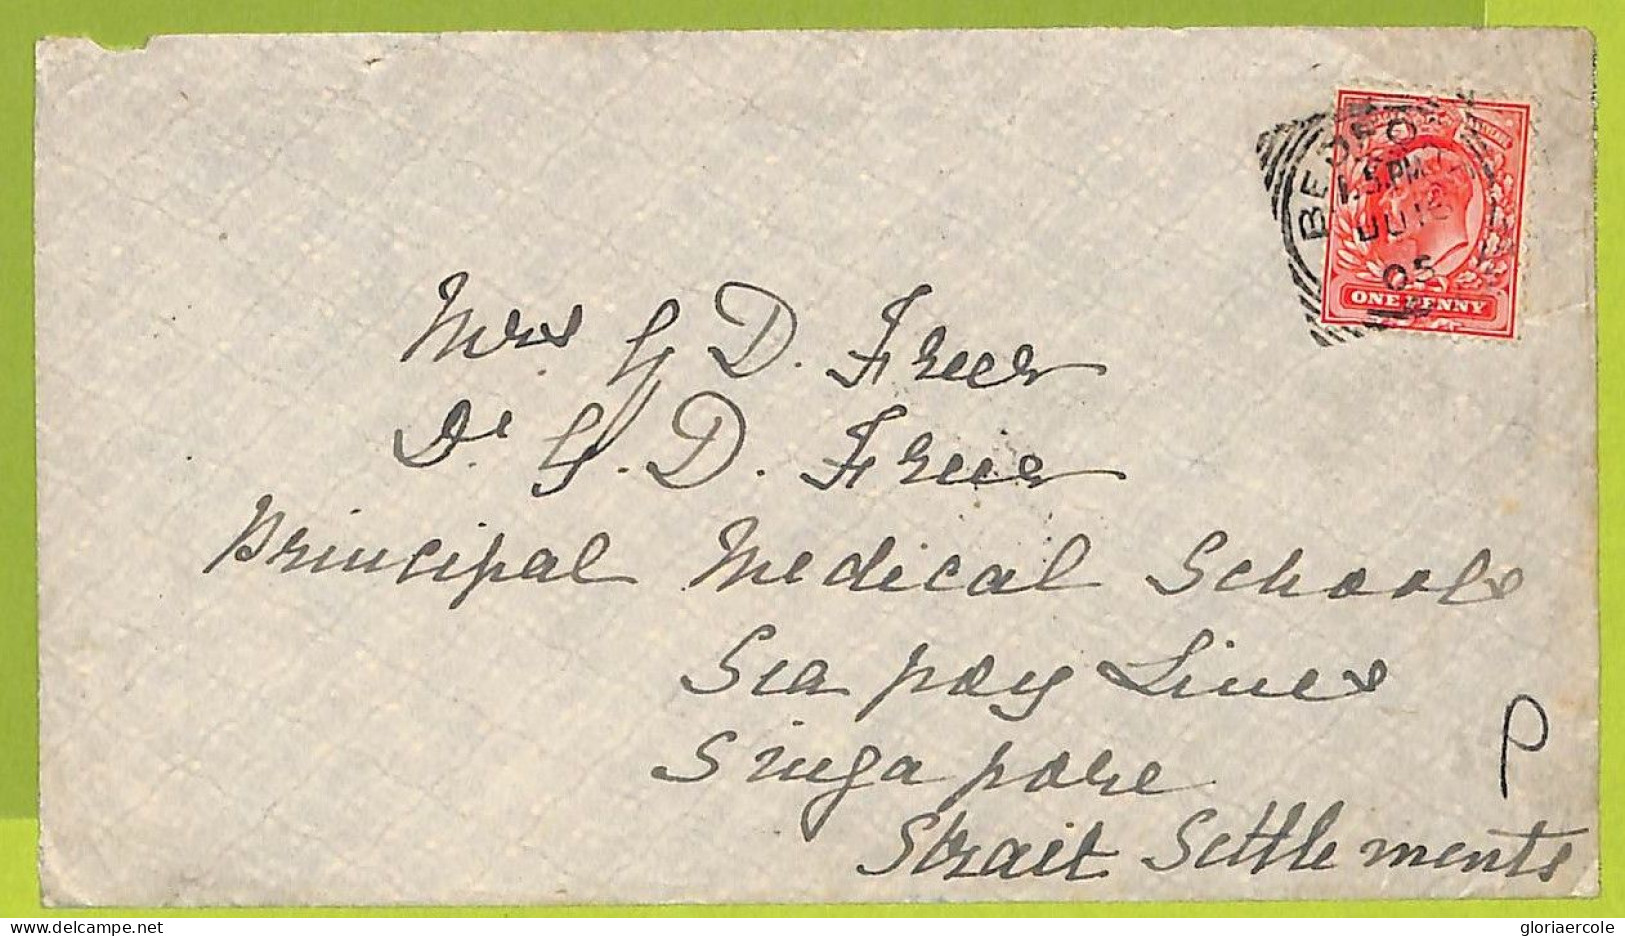 BEDFO
1.5.PM
JU 18
05
ONE PENNY
Mrs G D. Freer
Dr G. D. Freer
Principal Medical Schools
Sea poy Lines
Singapore
Strait Settlements
P
delcampe.net
gloriaercole